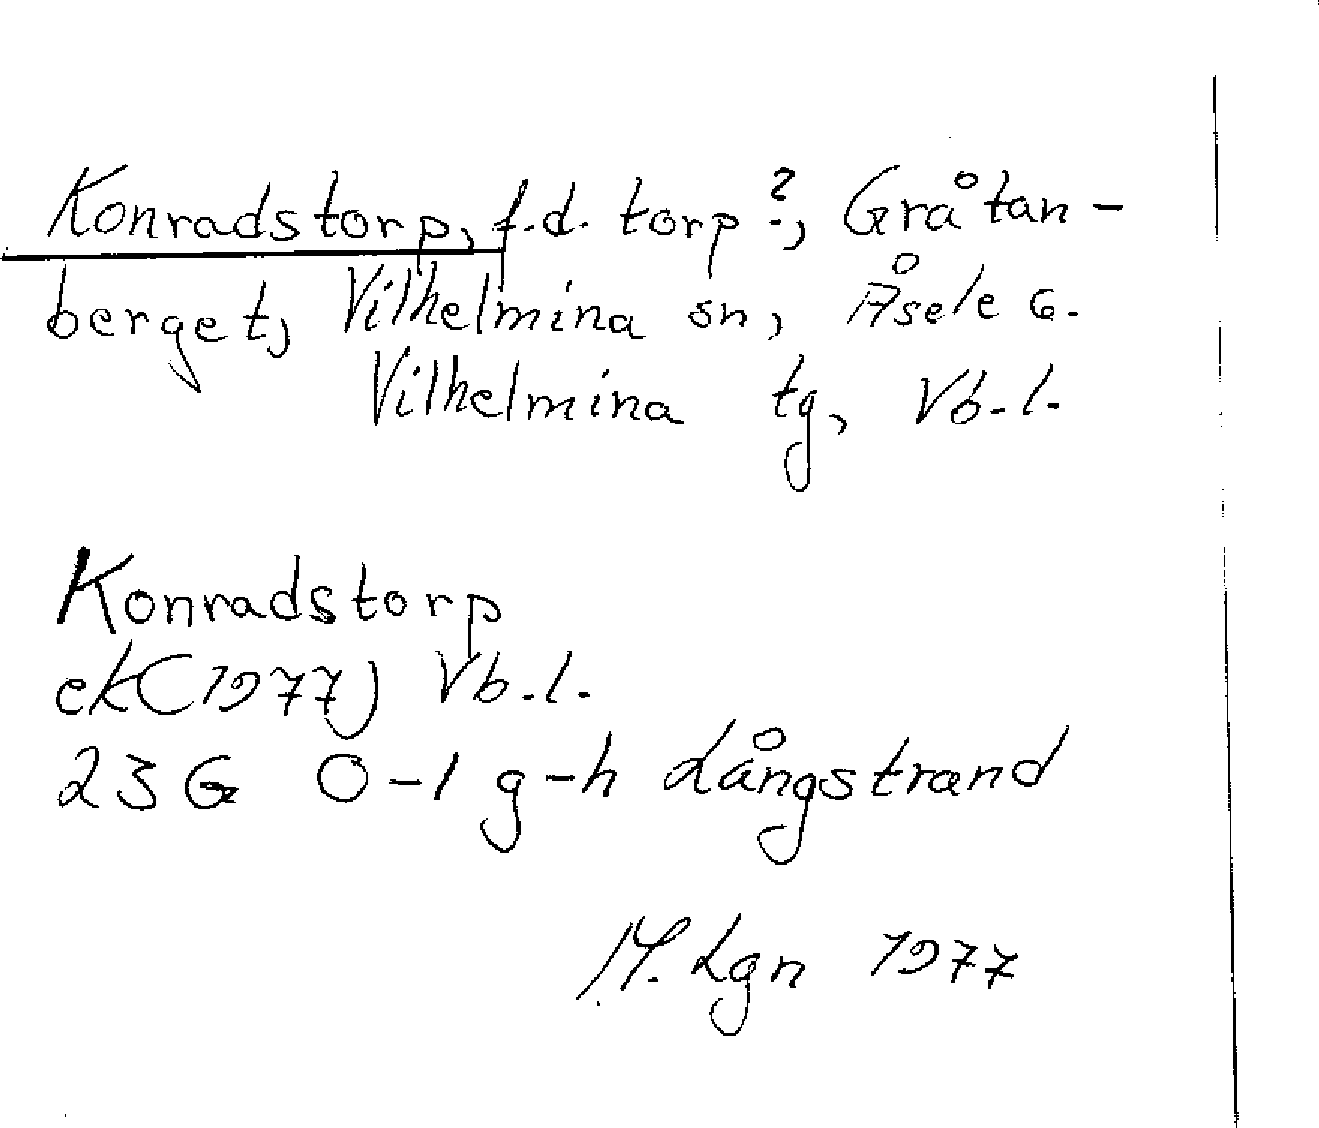 Konradstorp, f.d. torp?, Gråtan-
berget, Vilhelmina sn, Åsele G.
Vilhelmina tg, Vb.l.
Konradstorp
ek(1977) Vb.l.
23G 0-1 g-h Långstrand
M. Lgn 1977